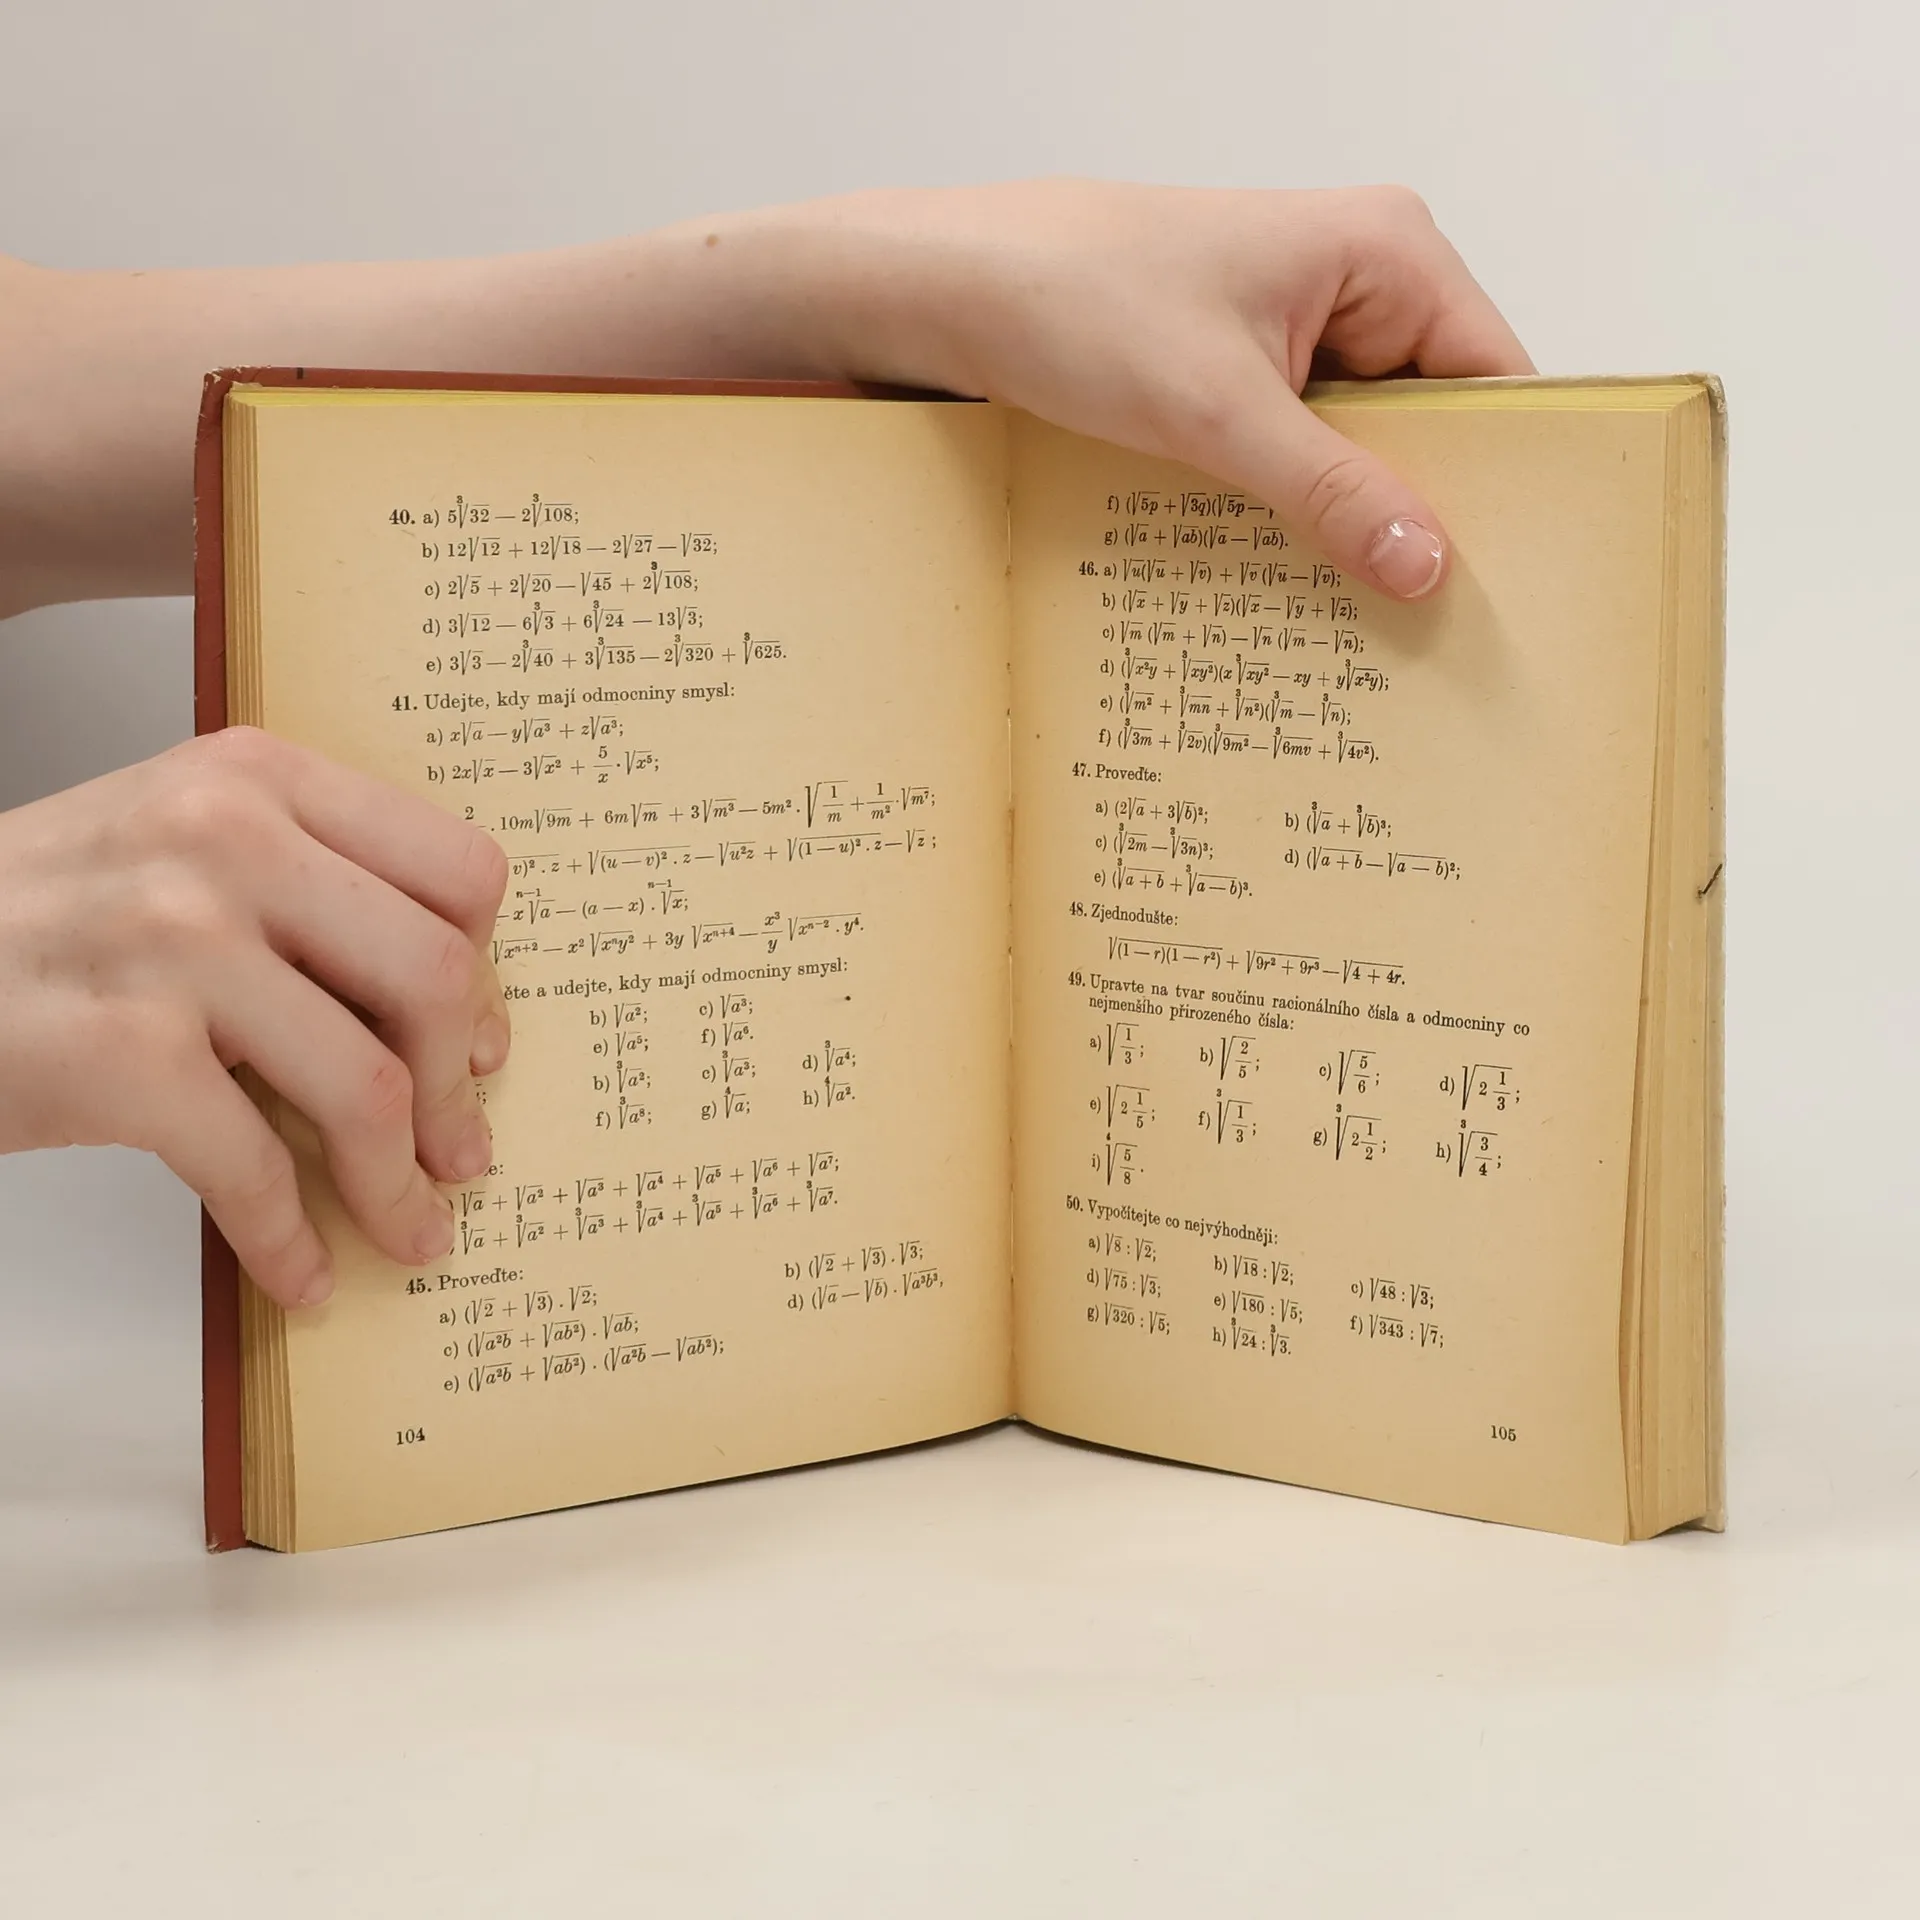 40. a) 5∛32 — 2∛108;
b) 12√12 + 12√18 — 2√27 — √32;
c) 2√5 + 2√20 — √45 + 2∛108;
d) 3√12 — 6∛3 + 6∛24 — 13√3;
e) 3√3 — 2∛40 + 3∛135 — 2∛320 + ∛625.
41. Udejte, kdy mají odmocniny smysl:
a) x√a — y√a³ + z√a³;
b) 2x√x — 3√x² + 5/x · √x⁵;
2 . 10m√9m + 6m√m + 3√m³ — 5m² . √(1/m) + 1/m² · √m⁷;
v)² . z + √((u — v)² . z) — √(u²z) + √((1 — u)² . z) — √z ;
— x ⁿ⁻¹√a — (a — x) . ⁿ⁻¹√x;
√(xⁿ⁺²) — x² √(xⁿy²) + 3y √(xⁿ⁺⁴) — x³/y √(xⁿ⁻² . y⁴).
a udejte, kdy mají odmocniny smysl:
b) √a²; c) √a³;
e) √a⁵; f) √a⁶.
b) ∛a²; c) ∛a³; d) ∛a⁴;
f) ∛a⁸; g) ∜a; h) ∜a².
√a + √a² + √a³ + √a⁴ + √a⁵ + √a⁶ + √a⁷;
∛a + ∛a² + ∛a³ + ∛a⁴ + ∛a⁵ + ∛a⁶ + ∛a⁷.
45. Proveďte:
a) (√2 + √3) . √2; b) (√2 + √3) . √3;
c) (√a²b + √ab²) . √ab; d) (√a — √b) . √a³b³,
e) (√a²b + √ab²) . (√a²b — √ab²);
104
f) (√5p + √3q)(√5p —
g) (√a + √ab)(√a — √ab).
46. a) √u(√u + √v) + √v (√u — √v);
b) (√x + √y + √z)(√x — √y + √z);
c) √m (√m + √n) — √n (√m — √n);
d) (∛x²y + ∛xy²)(x ∛xy² — xy + y∛x²y);
e) (∛m² + ∛mn + ∛n²)(∛m — ∛n);
f) (∛3m + ∛2v)(∛9m² — ∛6mv + ∛4v²).
47. Proveďte:
a) (2√a + 3√b)²; b) (∛a + ∛b)³;
c) (∛2m — ∛3n)³; d) (√(a + b) — √(a — b))²;
e) (∛(a + b) + ∛(a — b))³.
48. Zjednodušte:
√((1 — r)(1 — r²)) + √(9r² + 9r³) — √(4 + 4r).
49. Upravte na tvar součinu racionálního čísla a odmocniny co
nejmenšího přirozeného čísla:
a) √(1/3); b) √(2/5); c) √(5/6); d) √(2 1/3);
e) √(2 1/5); f) ∛(1/3); g) ∛(2 1/2); h) ∛(3/4);
i) ∜(5/8).
50. Vypočítejte co nejvýhodněji:
a) √8 : √2; b) √18 : √2; c) √48 : √3;
d) √75 : √3; e) √180 : √5; f) √343 : √7;
g) √320 : √5; h) ∛24 : ∛3.
105